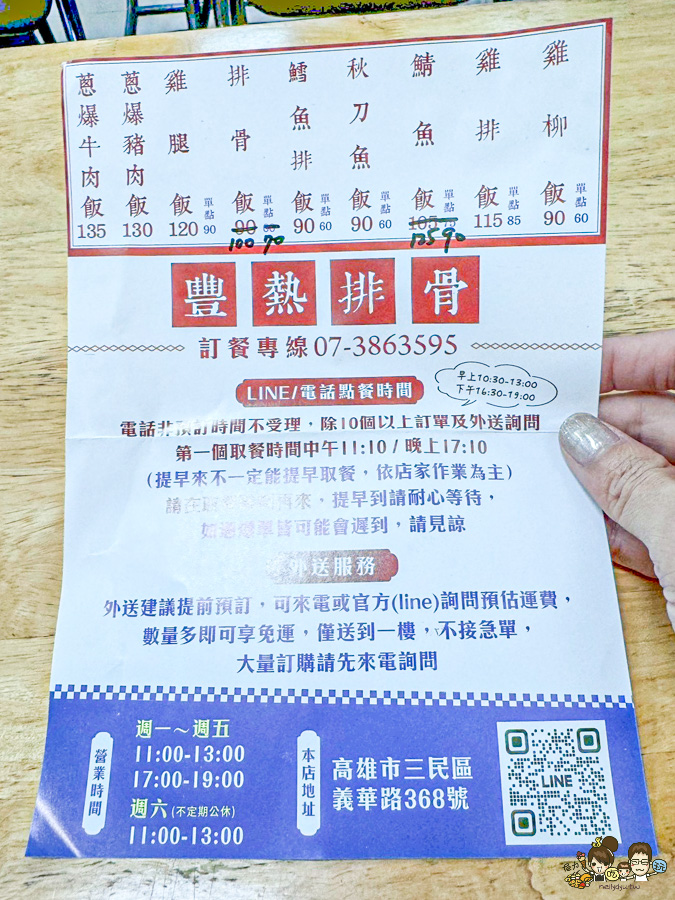 蔥爆牛肉飯 135
蔥爆豬肉飯 130
雞腿飯 120 單點 90
排骨飯 90 單點 60 100 70
鱈魚排飯 90 單點 60
秋刀魚飯 90 單點 60
鯖魚飯 105 單點 75 90
雞排飯 115 單點 85
雞柳飯 90 單點 60
豐熱排骨
訂餐專線 07-3863595
LINE/電話點餐時間
早上10:30-13:00
下午16:30-19:00
電話非預訂時間不受理，除10個以上訂單及外送詢問
第一個取餐時間中午11:10 / 晚上17:10
(提早來不一定能提早取餐，依店家作業為主)
請在 再來、提早到請耐心等待，
如遇 單皆可能會遲到，請見諒
外送服務
外送建議提前預訂，可來電或官方(line)詢問預估運費，
數量多即可享免運，僅送到一樓，不接急單，
大量訂購請先來電詢問
營業時間
週一～週五
11:00-13:00
17:00-19:00
週六 (不定期公休)
11:00-13:00
本店地址
高雄市三民區
義華路368號
LINE
吃
玩
neilyd.tw/tw